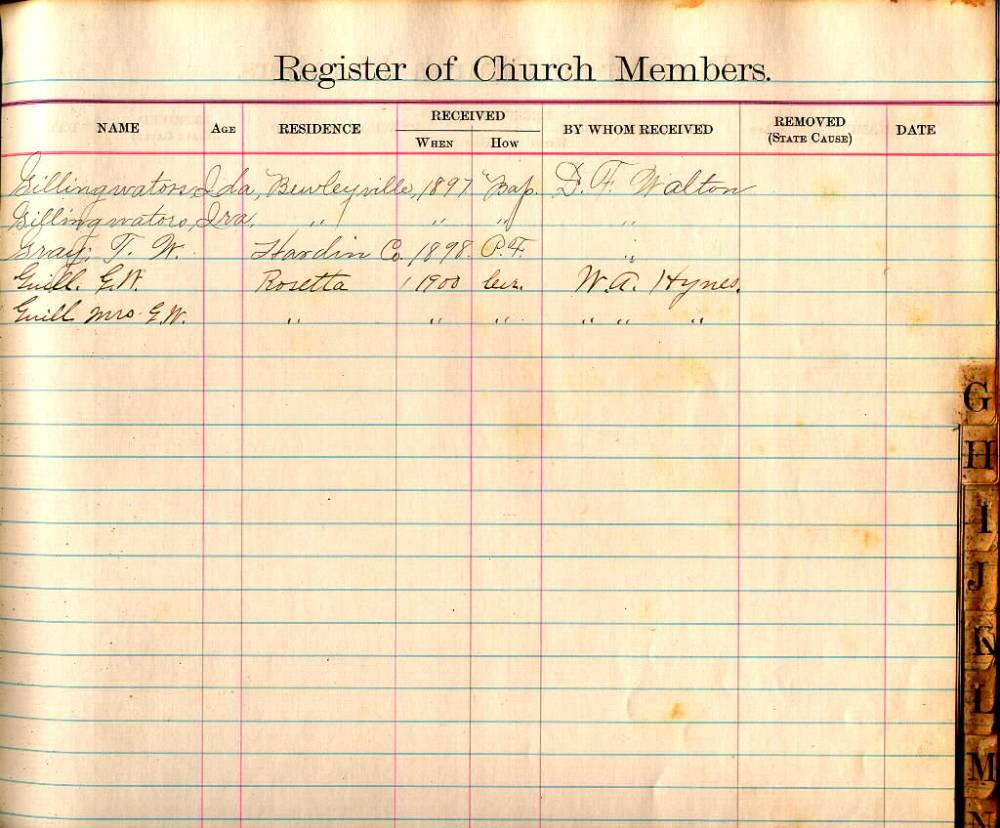 Register of Church Members.
RECEIVED
NAME AGE RESIDENCE WHEN HOW BY WHOM RECEIVED REMOVED (STATE CAUSE) DATE
Gillingwators, Ida, Bewleyville, 1897 Bap. D. F. Walton
Gillingwators, Ira. " " " "
Gray, T. W. Hardin Co. 1898. P.F. "
Guill. G.W. Rosetta 1900 W.A. Hynes.
Guill Mrs G.W. " " " " " "
G
H
I
J
K
L
M
N